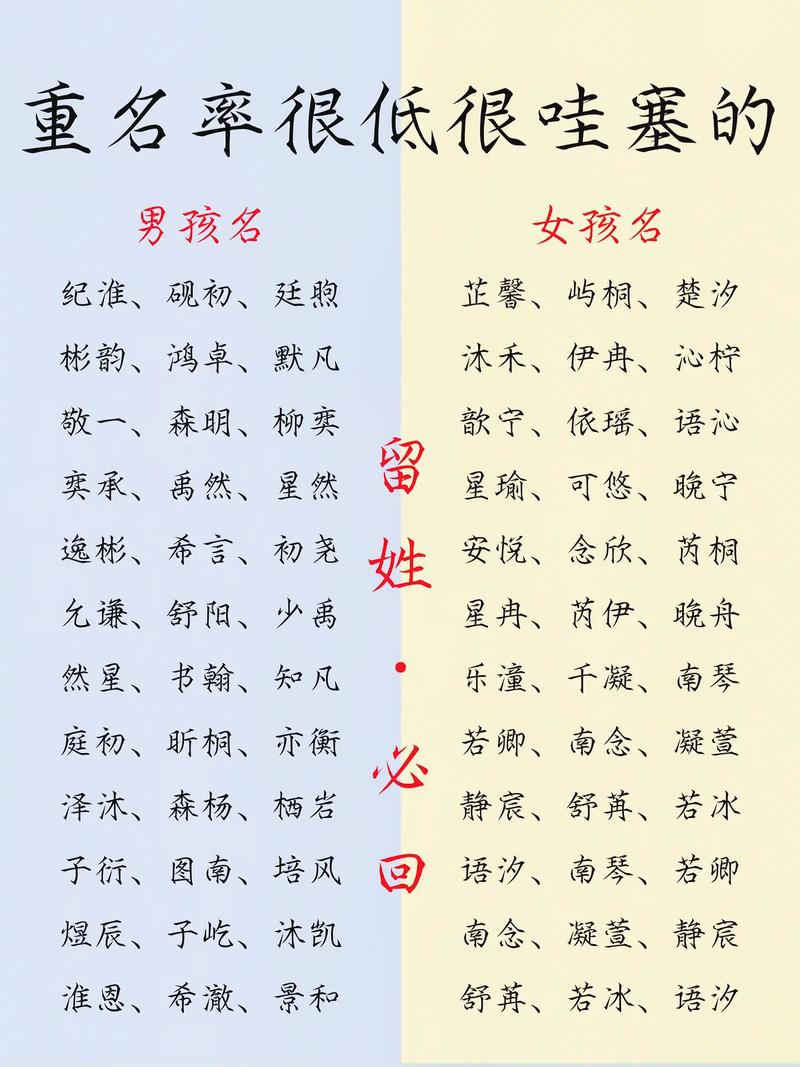 重名率很低很哇塞的
男孩名
纪淮、砚初、廷煦
彬韵、鸿卓、默凡
敬一、森明、柳奕
奕承、禹然、星然
逸彬、希言、初尧
允谦、舒阳、少禹
然星、书翰、知凡
庭初、昕桐、亦衡
泽沐、森杨、栖岩
子衍、图南、培风
煜辰、子屹、沐凯
淮恩、希澈、景和
留姓·必回
女孩名
芷馨、屿桐、楚汐
沐禾、伊冉、沁柠
歆宁、依瑶、语沁
星瑜、可悠、晚宁
安悦、念欣、芮桐
星冉、芮伊、晚舟
乐潼、千凝、南琴
若卿、南念、凝萱
静宸、舒苒、若冰
语汐、南琴、若卿
南念、凝萱、静宸
舒苒、若冰、语汐